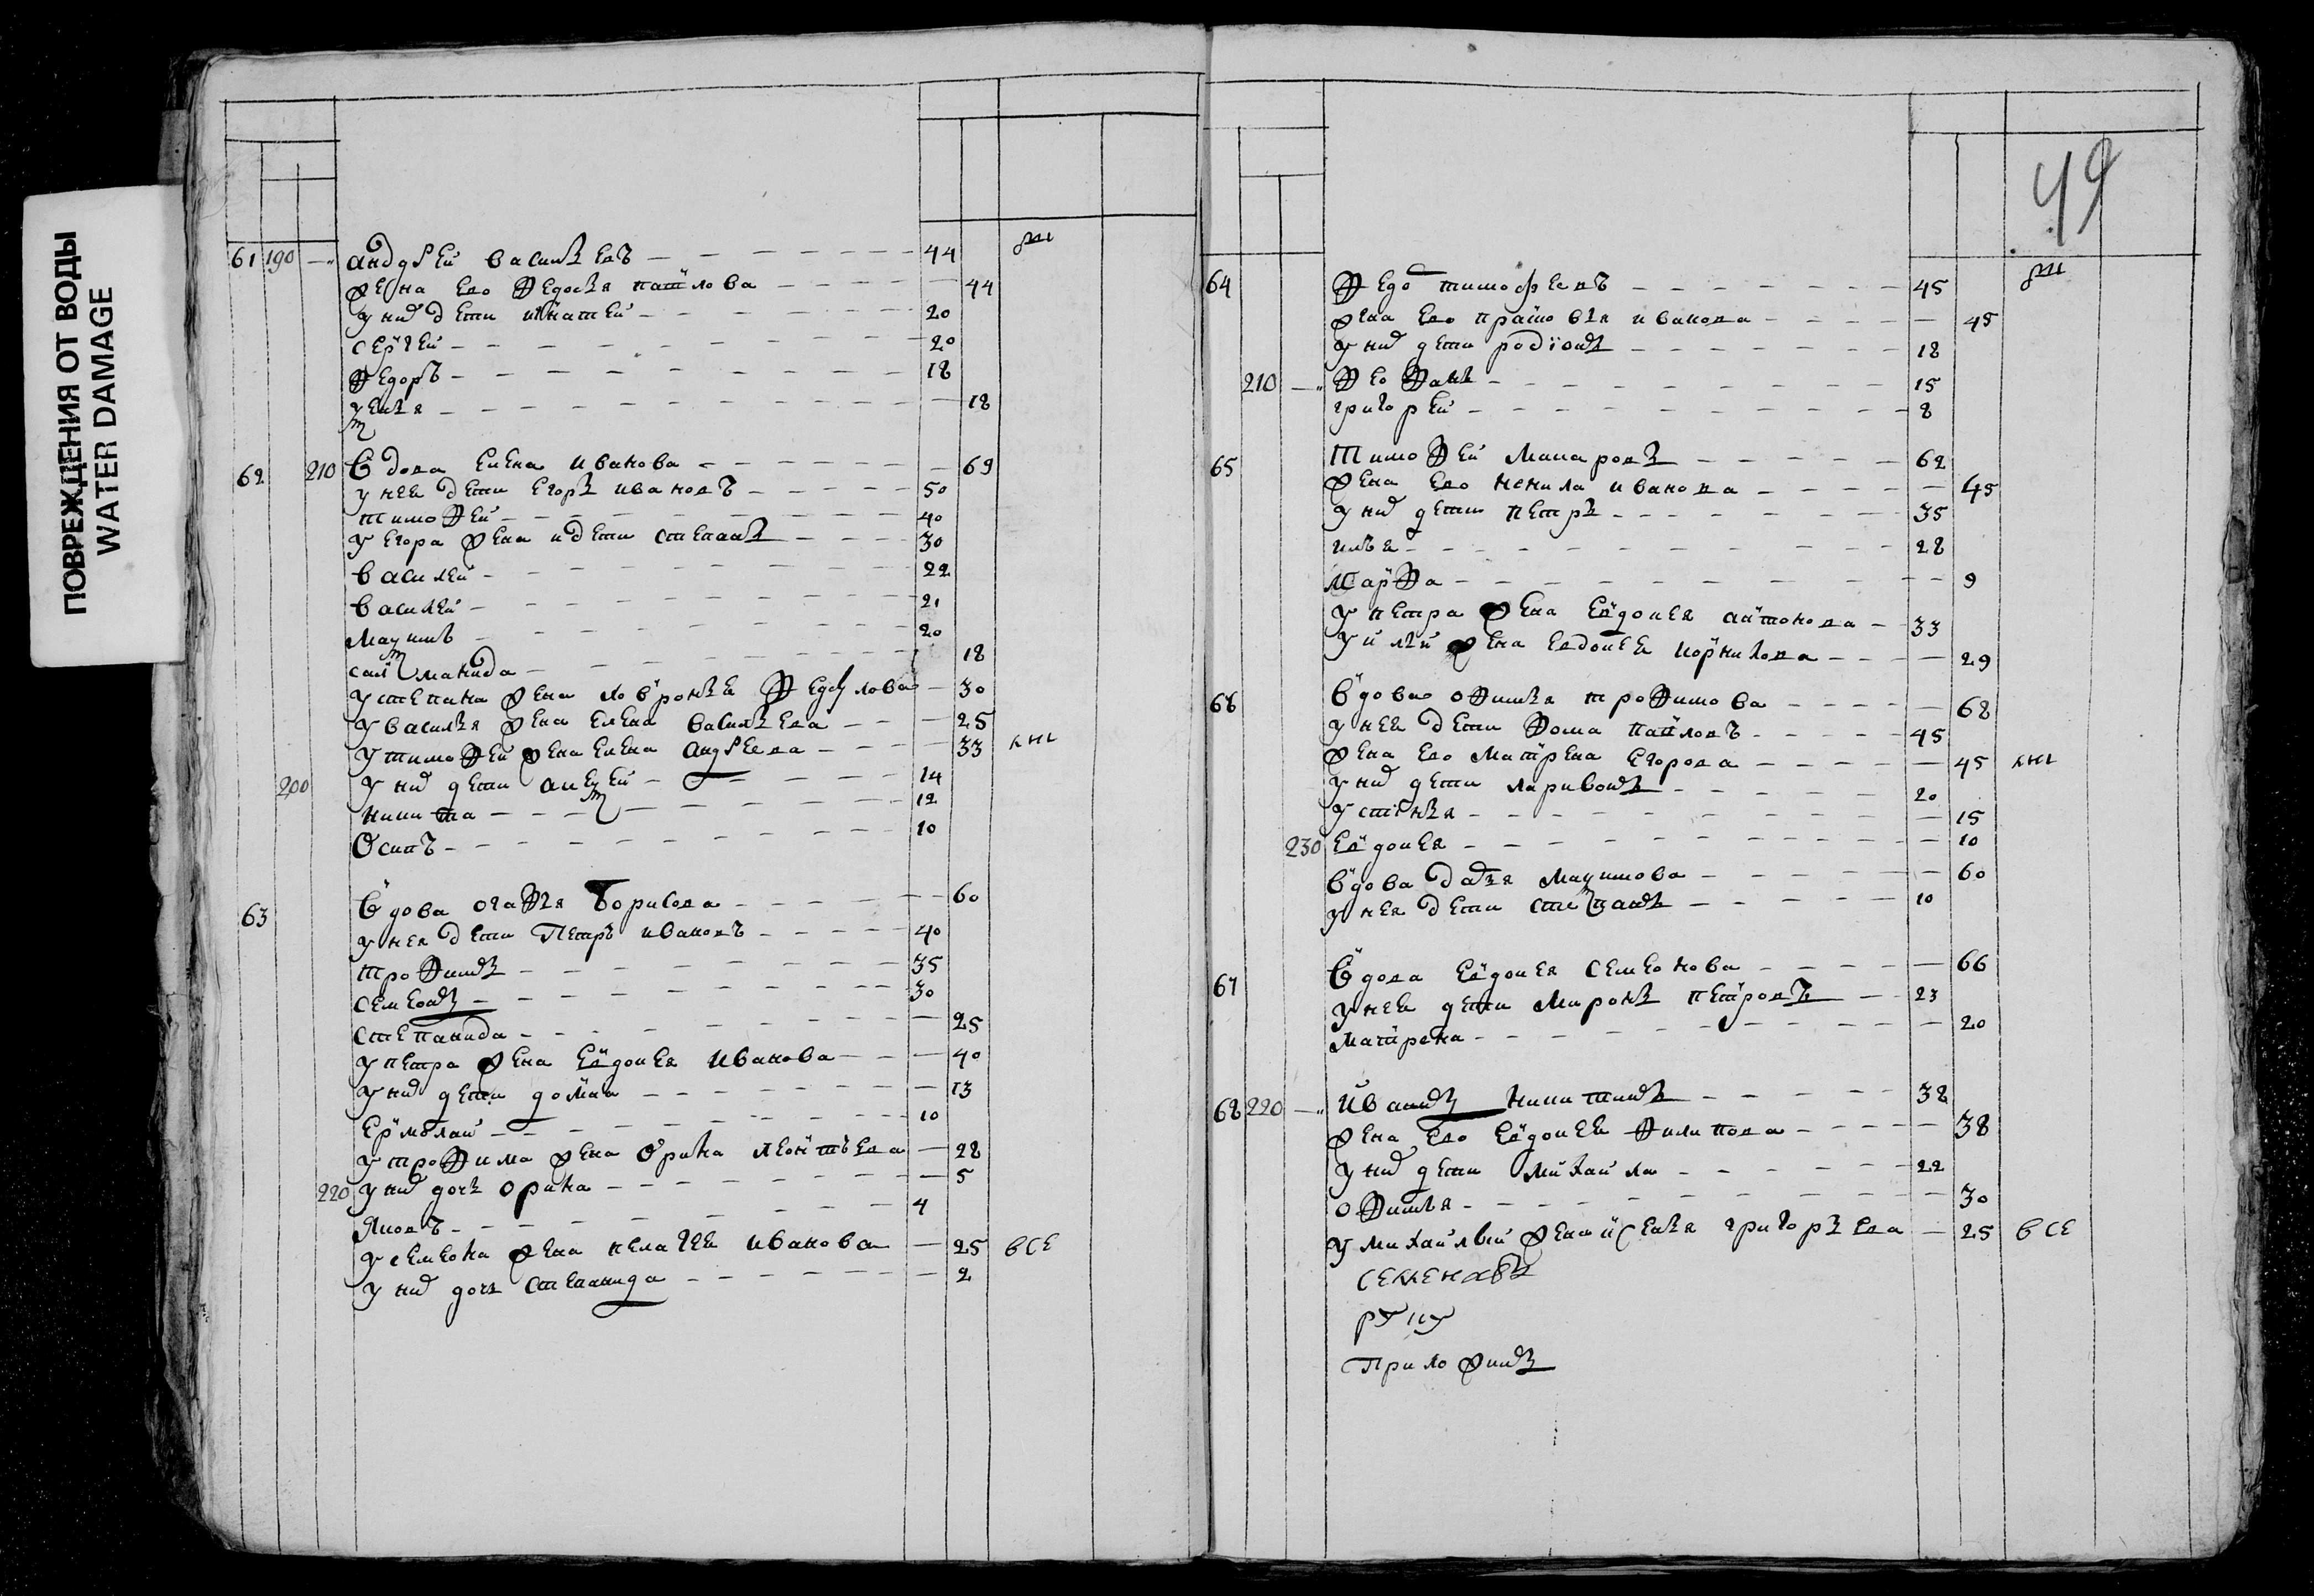 ПОВРЕЖДЕНИЯ ОТ ВОДЫ
WATER DAMAGE
61 190 андрей василевъ 44
жена ево федосья павлова 44
у них дети игнатей 20
сергей 20
федоръ 18
18
62 210 вдова елена иванова 69
у нея дети егоръ ивановъ 50
тимофей 40
у егора жена и дети степанъ 30
василей 22
василей 21
20
18
у степана жена 30
у василья жена елена васильева 25
у тимофея жена елена андреева 33
200 у них дети алексей 14
никита 12
осипъ 10
63 вдова агафья борисова 60
у нея дети петръ ивановъ 40
трофимъ 35
семенъ 30
степанида 25
у петра жена евдокея иванова 40
у них дети домна 13
ермолай 10
у трофима жена орина леонтьева 28
220 у них дочь орина 5
яковъ 4
у семена жена пелагея иванова 25 все
у них дочь степанида 2
49
64 федоръ тимофеевъ 45
жена ево прасковья иванова 45
у них дети родионъ 18
210 феофанъ 15
григорей 8
65 тимофей макаровъ 62
жена ево ненила иванова 45
у них дети петръ 35
илья 28
марфа 9
у петра жена евдокея антонова 33
у ильи жена евдокея корнилова 29
66 вдова офимья трофимова 68
у нея дети фома павловъ 45
жена ево матрена егорова 45
у них дети ларивонъ 20
устинья 15
230 евдокея 10
вдова дарья 60
у нея дети степанъ 10
67 вдова евдокея семенова 66
у нея дети миронъ петровъ 23
матрена 20
68 220 иванъ никитинъ 38
жена ево евдокея филипова 38
у них дети михайла 22
офимья 30
у михайлы жена аксенья григорьева 25 все
руку
приложилъ